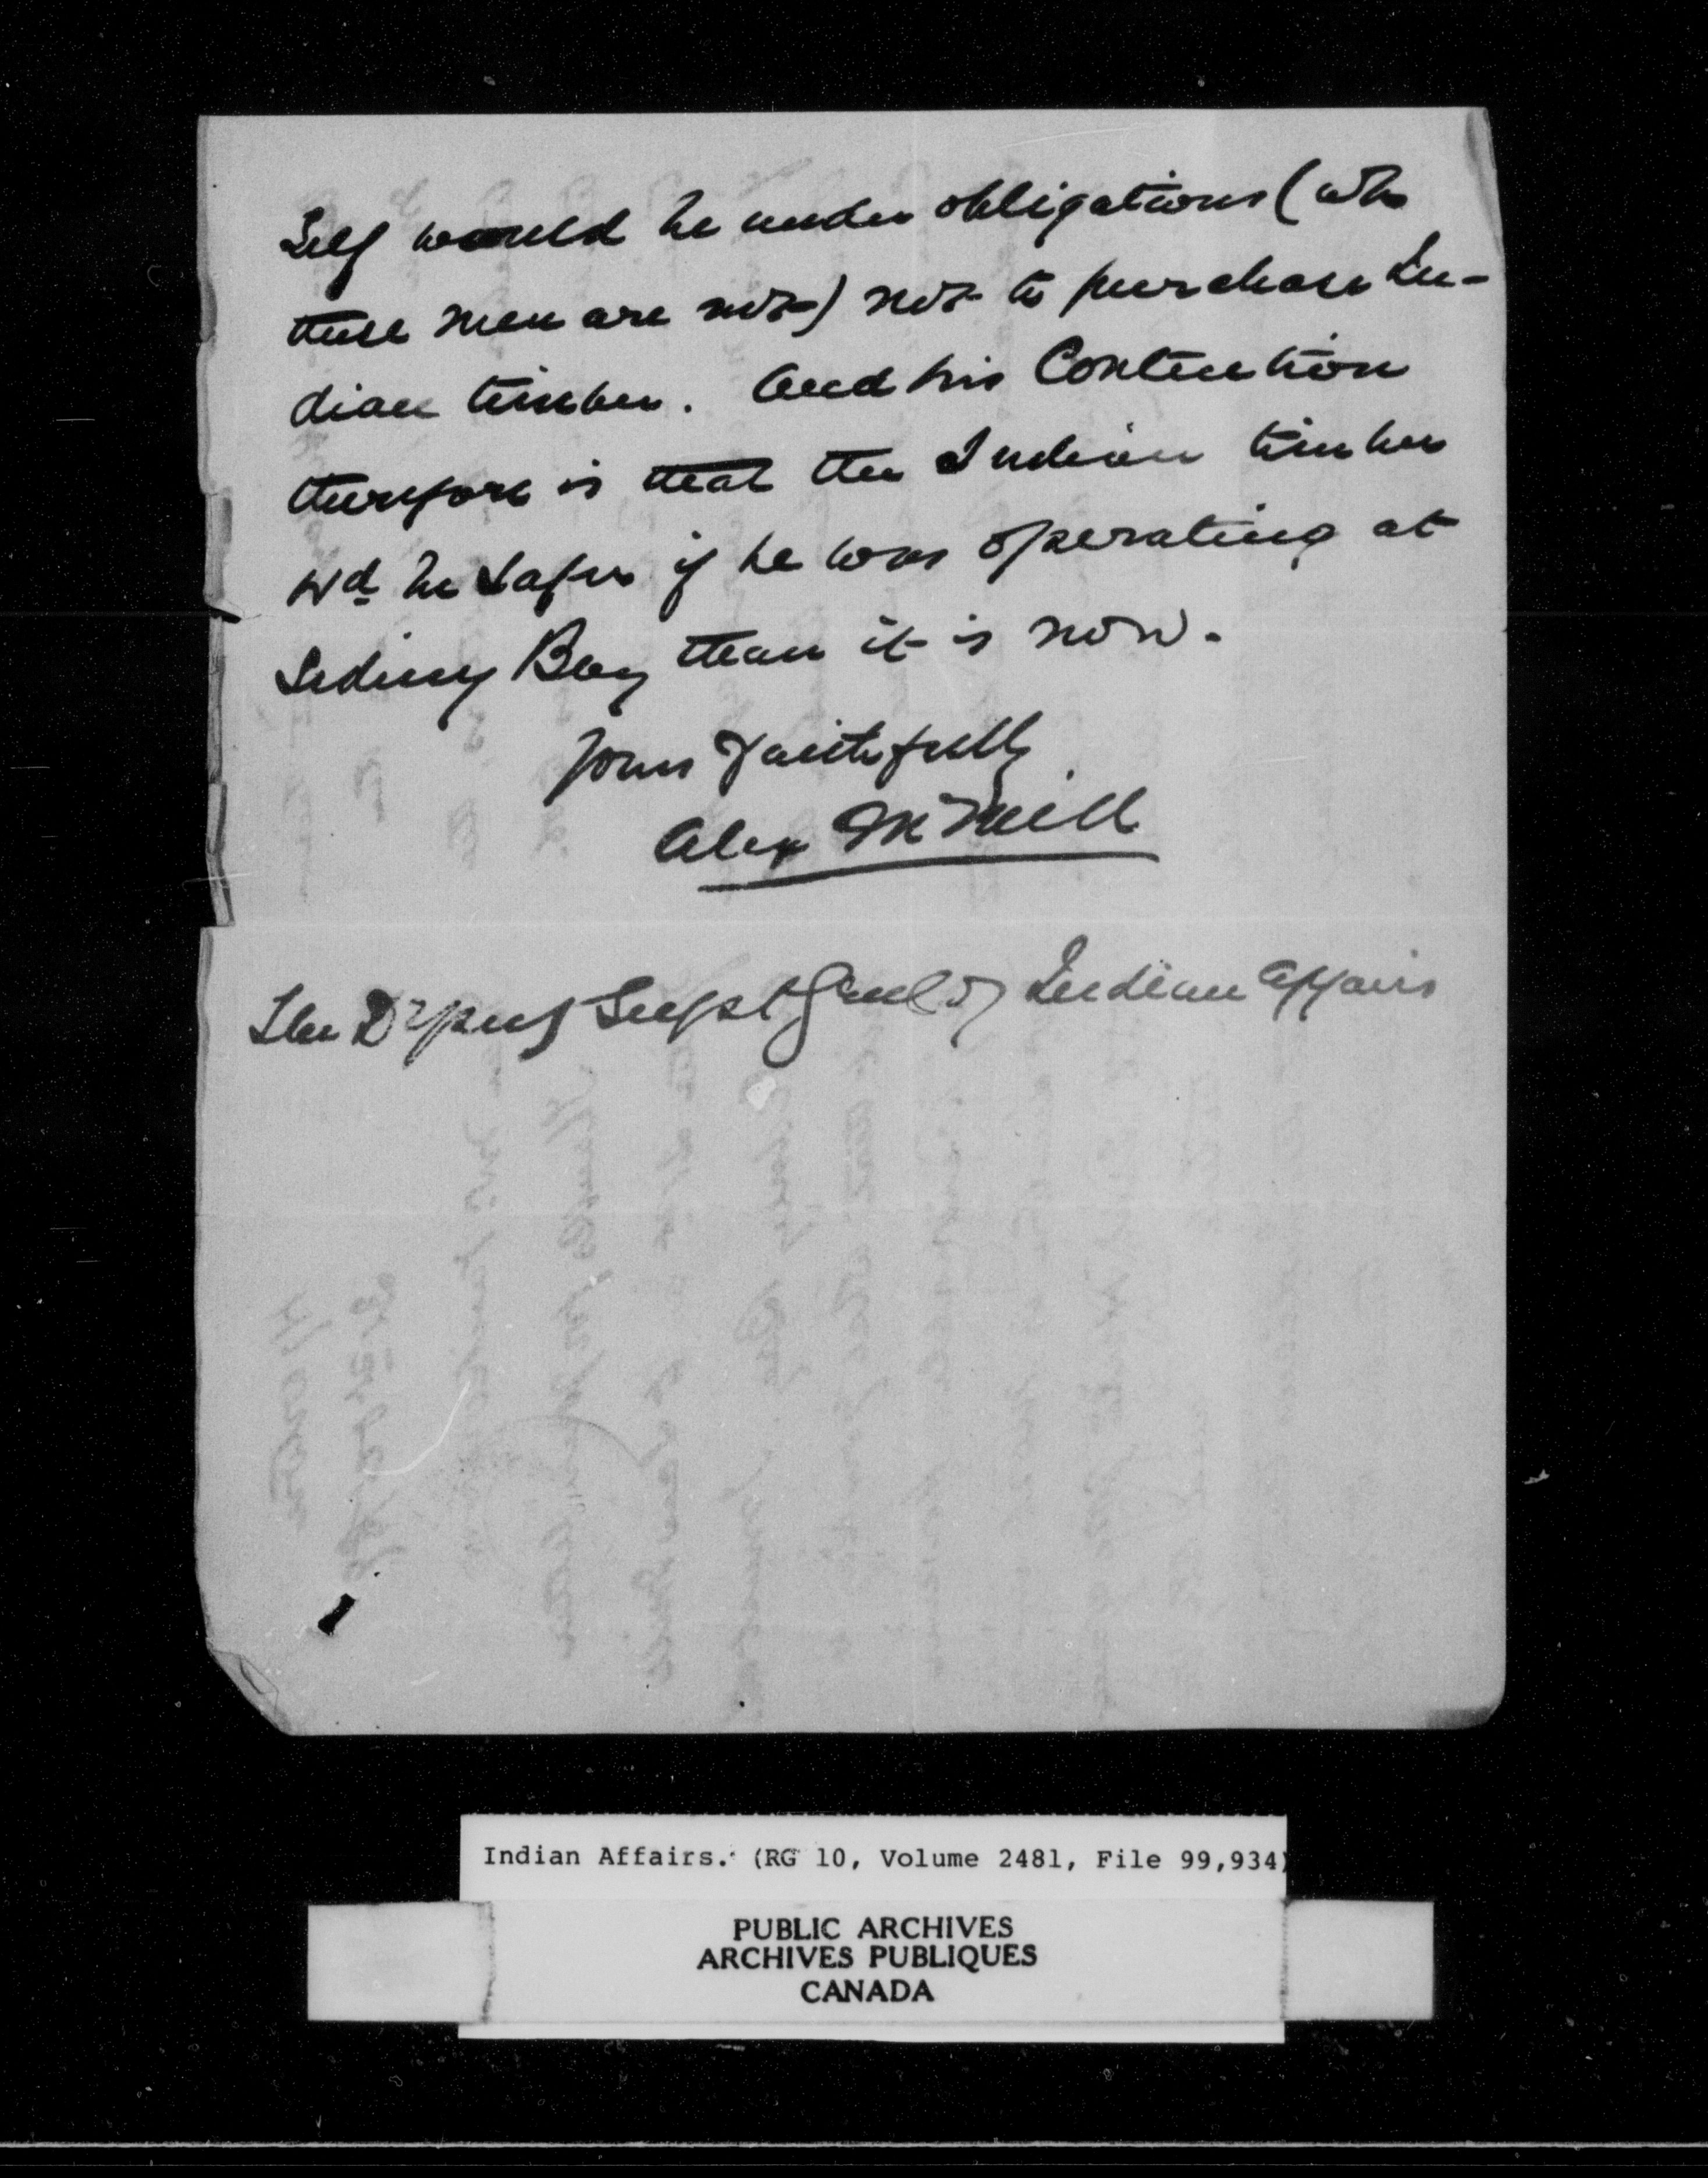 self would be under obligations (wh
these men are not) not to purchase In-
dian timber. And his Contention
therefore is that the Indian timber
wd be safer if he was operating at
Sidney Bay than it is now.
Yours Faithfully
Alex McNeill
The Deputy Supt Genl of Indian Affairs
Indian Affairs. (RG 10, Volume 2481, File 99,934)
PUBLIC ARCHIVES
ARCHIVES PUBLIQUES
CANADA